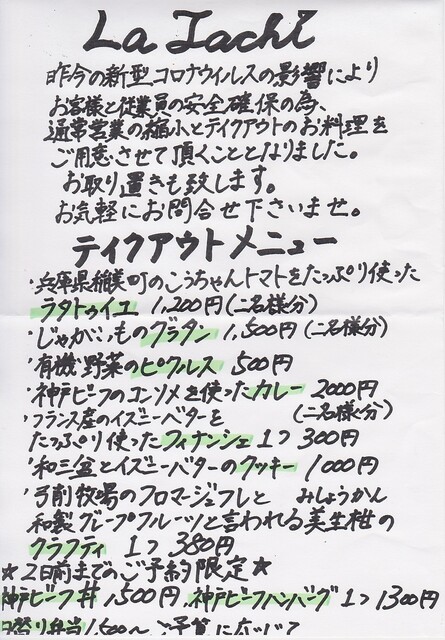 La Tachi
昨今の新型コロナウイルスの影響により
お客様と従業員の安全確保の為、
通常営業の縮小とテイクアウトのお料理を
ご用意させて頂くこととなりました。
お取り置きも致します。
お気軽にお問合せ下さいませ。
テイクアウトメニュー
・兵庫県稲美町のこうちゃんトマトをたっぷり使った
ラタトゥイユ 1,200円(二名様分)
・じゃがいものグラタン 1,500円(二名様分)
・有機野菜のピクルス 500円
・神戸ビーフのコンソメを使ったカレー 2000円
(二名様分)
・フランス産のイズニーバターを
たっぷり使ったフィナンシェ 1つ 300円
・和三盆とイズニーバターのクッキー 1000円
・弓削牧場のフロマージュフレと みしょうかん
和製グレープフルーツと言われる美生柑の
クラフティ 1つ 380円
☆2日前までのご予約限定☆
神戸ビーフ丼 1,500円、神戸ビーフハンバーグ 1つ 1300円
日替り弁当 1,500〜 ご予算に応じて